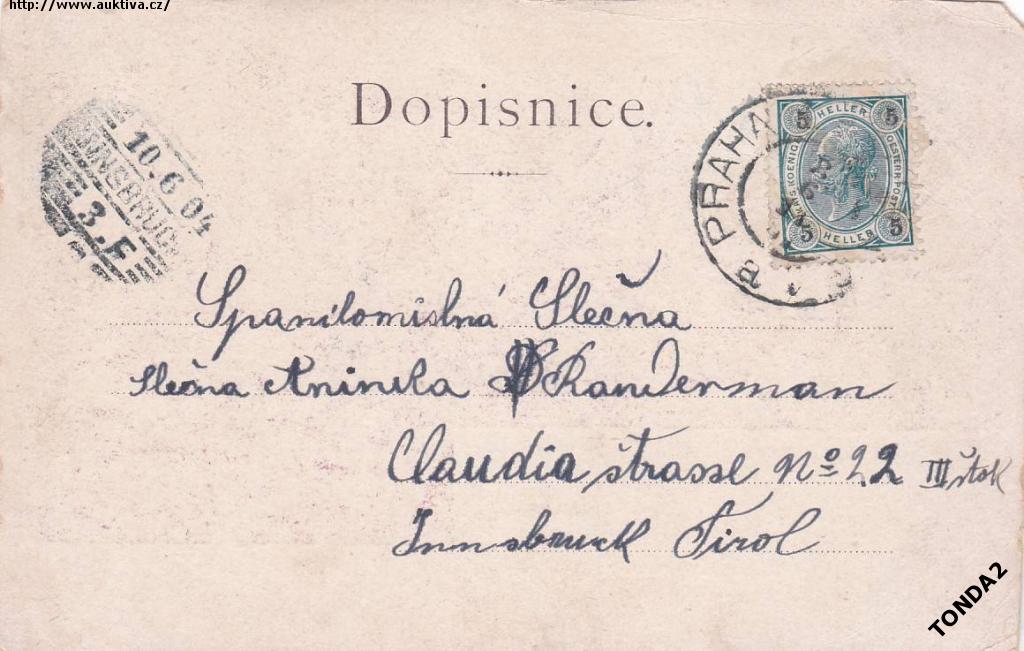 http://www.auktiva.cz/
Dopisnice.
10.6.04
INNSBRUCK
3.F
PRAHA
a
5 HELLER 5
OESTERR. POST
5 HELLER 5
Spanilomislná Slečna
Slečna Aninka Randerman
Claudia štrasse No 22 III štok
Innsbruck Tirol
TONDA2